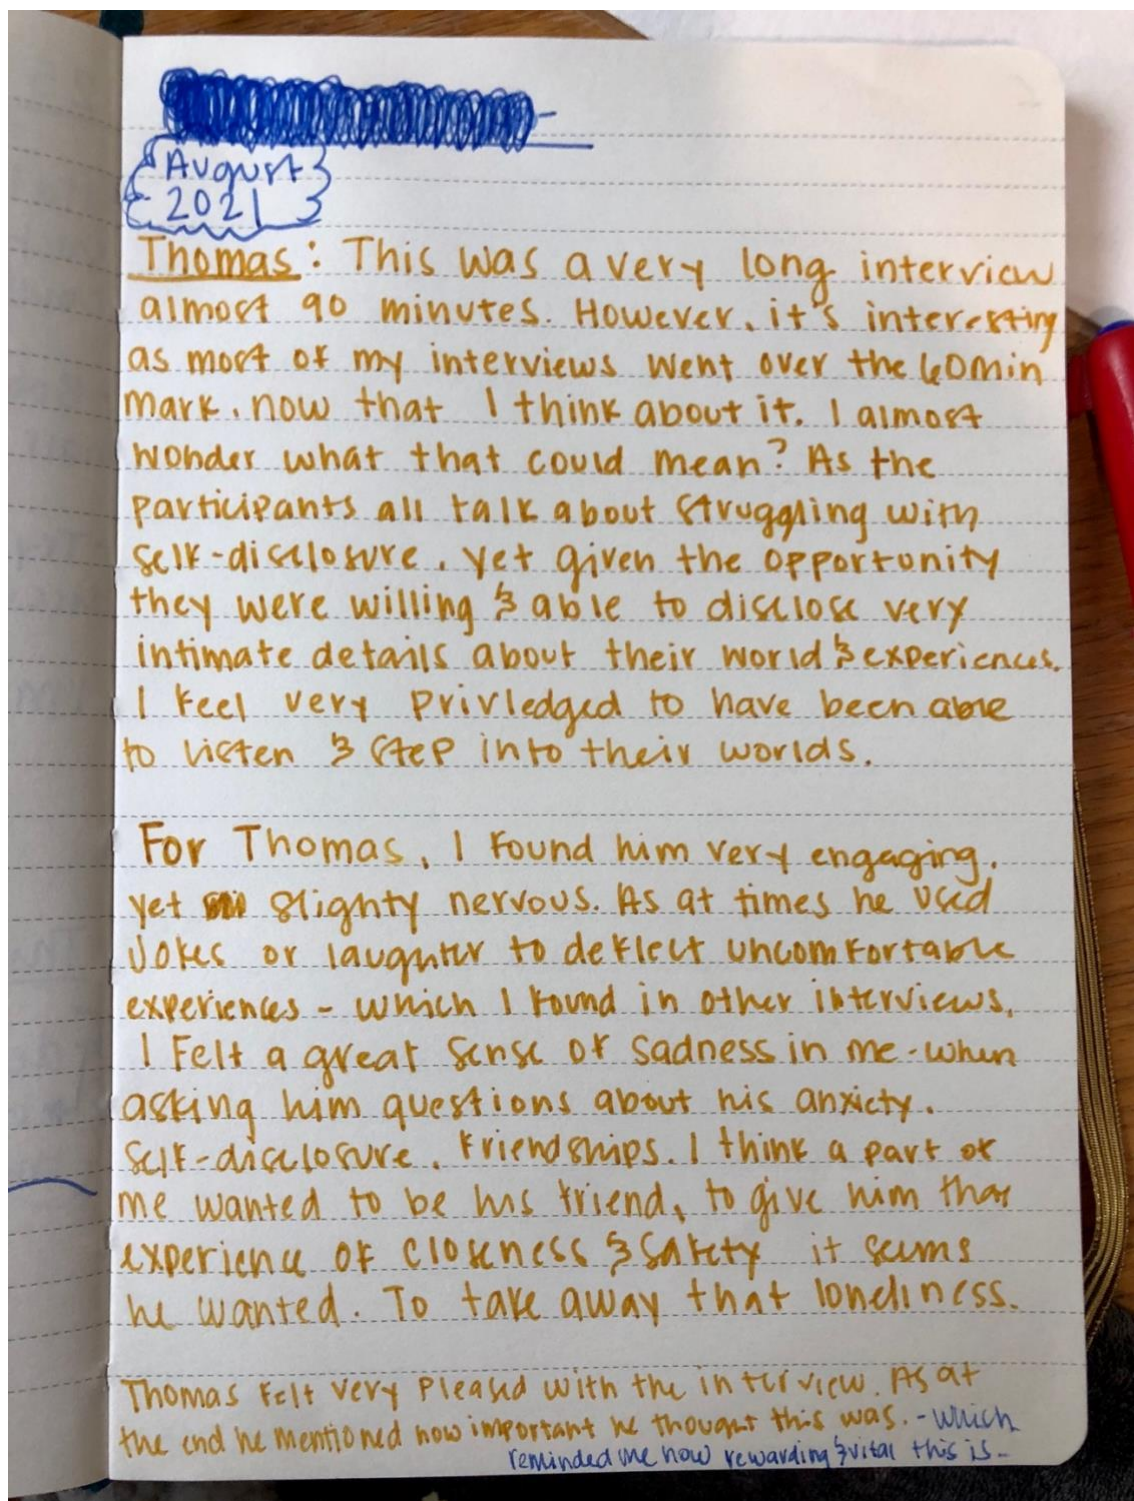 August
2021
Thomas: This was a very long interview
almost 90 minutes. However, it's interesting
as most of my interviews went over the 60min
mark, now that I think about it. I almost
wonder what that could mean? As the
participants all talk about struggling with
self-disclosure, yet given the opportunity
they were willing & able to disclose very
intimate details about their world & experiences.
I feel very privledged to have been able
to listen & step into their worlds.
For Thomas, I found him very engaging,
yet slighty nervous. As at times he used
jokes or laughter to deflect uncomfortable
experiences - which I found in other interviews.
I felt a great sense of sadness in me - when
asking him questions about his anxiety,
self-disclosure, friendships. I think a part of
me wanted to be his friend, to give him that
experience of closeness & safety it seems
he wanted. To take away that loneliness.
Thomas felt very pleased with the interview. As at
the end he mentioned how important he thought this was. - which
reminded me how rewarding & vital this is -